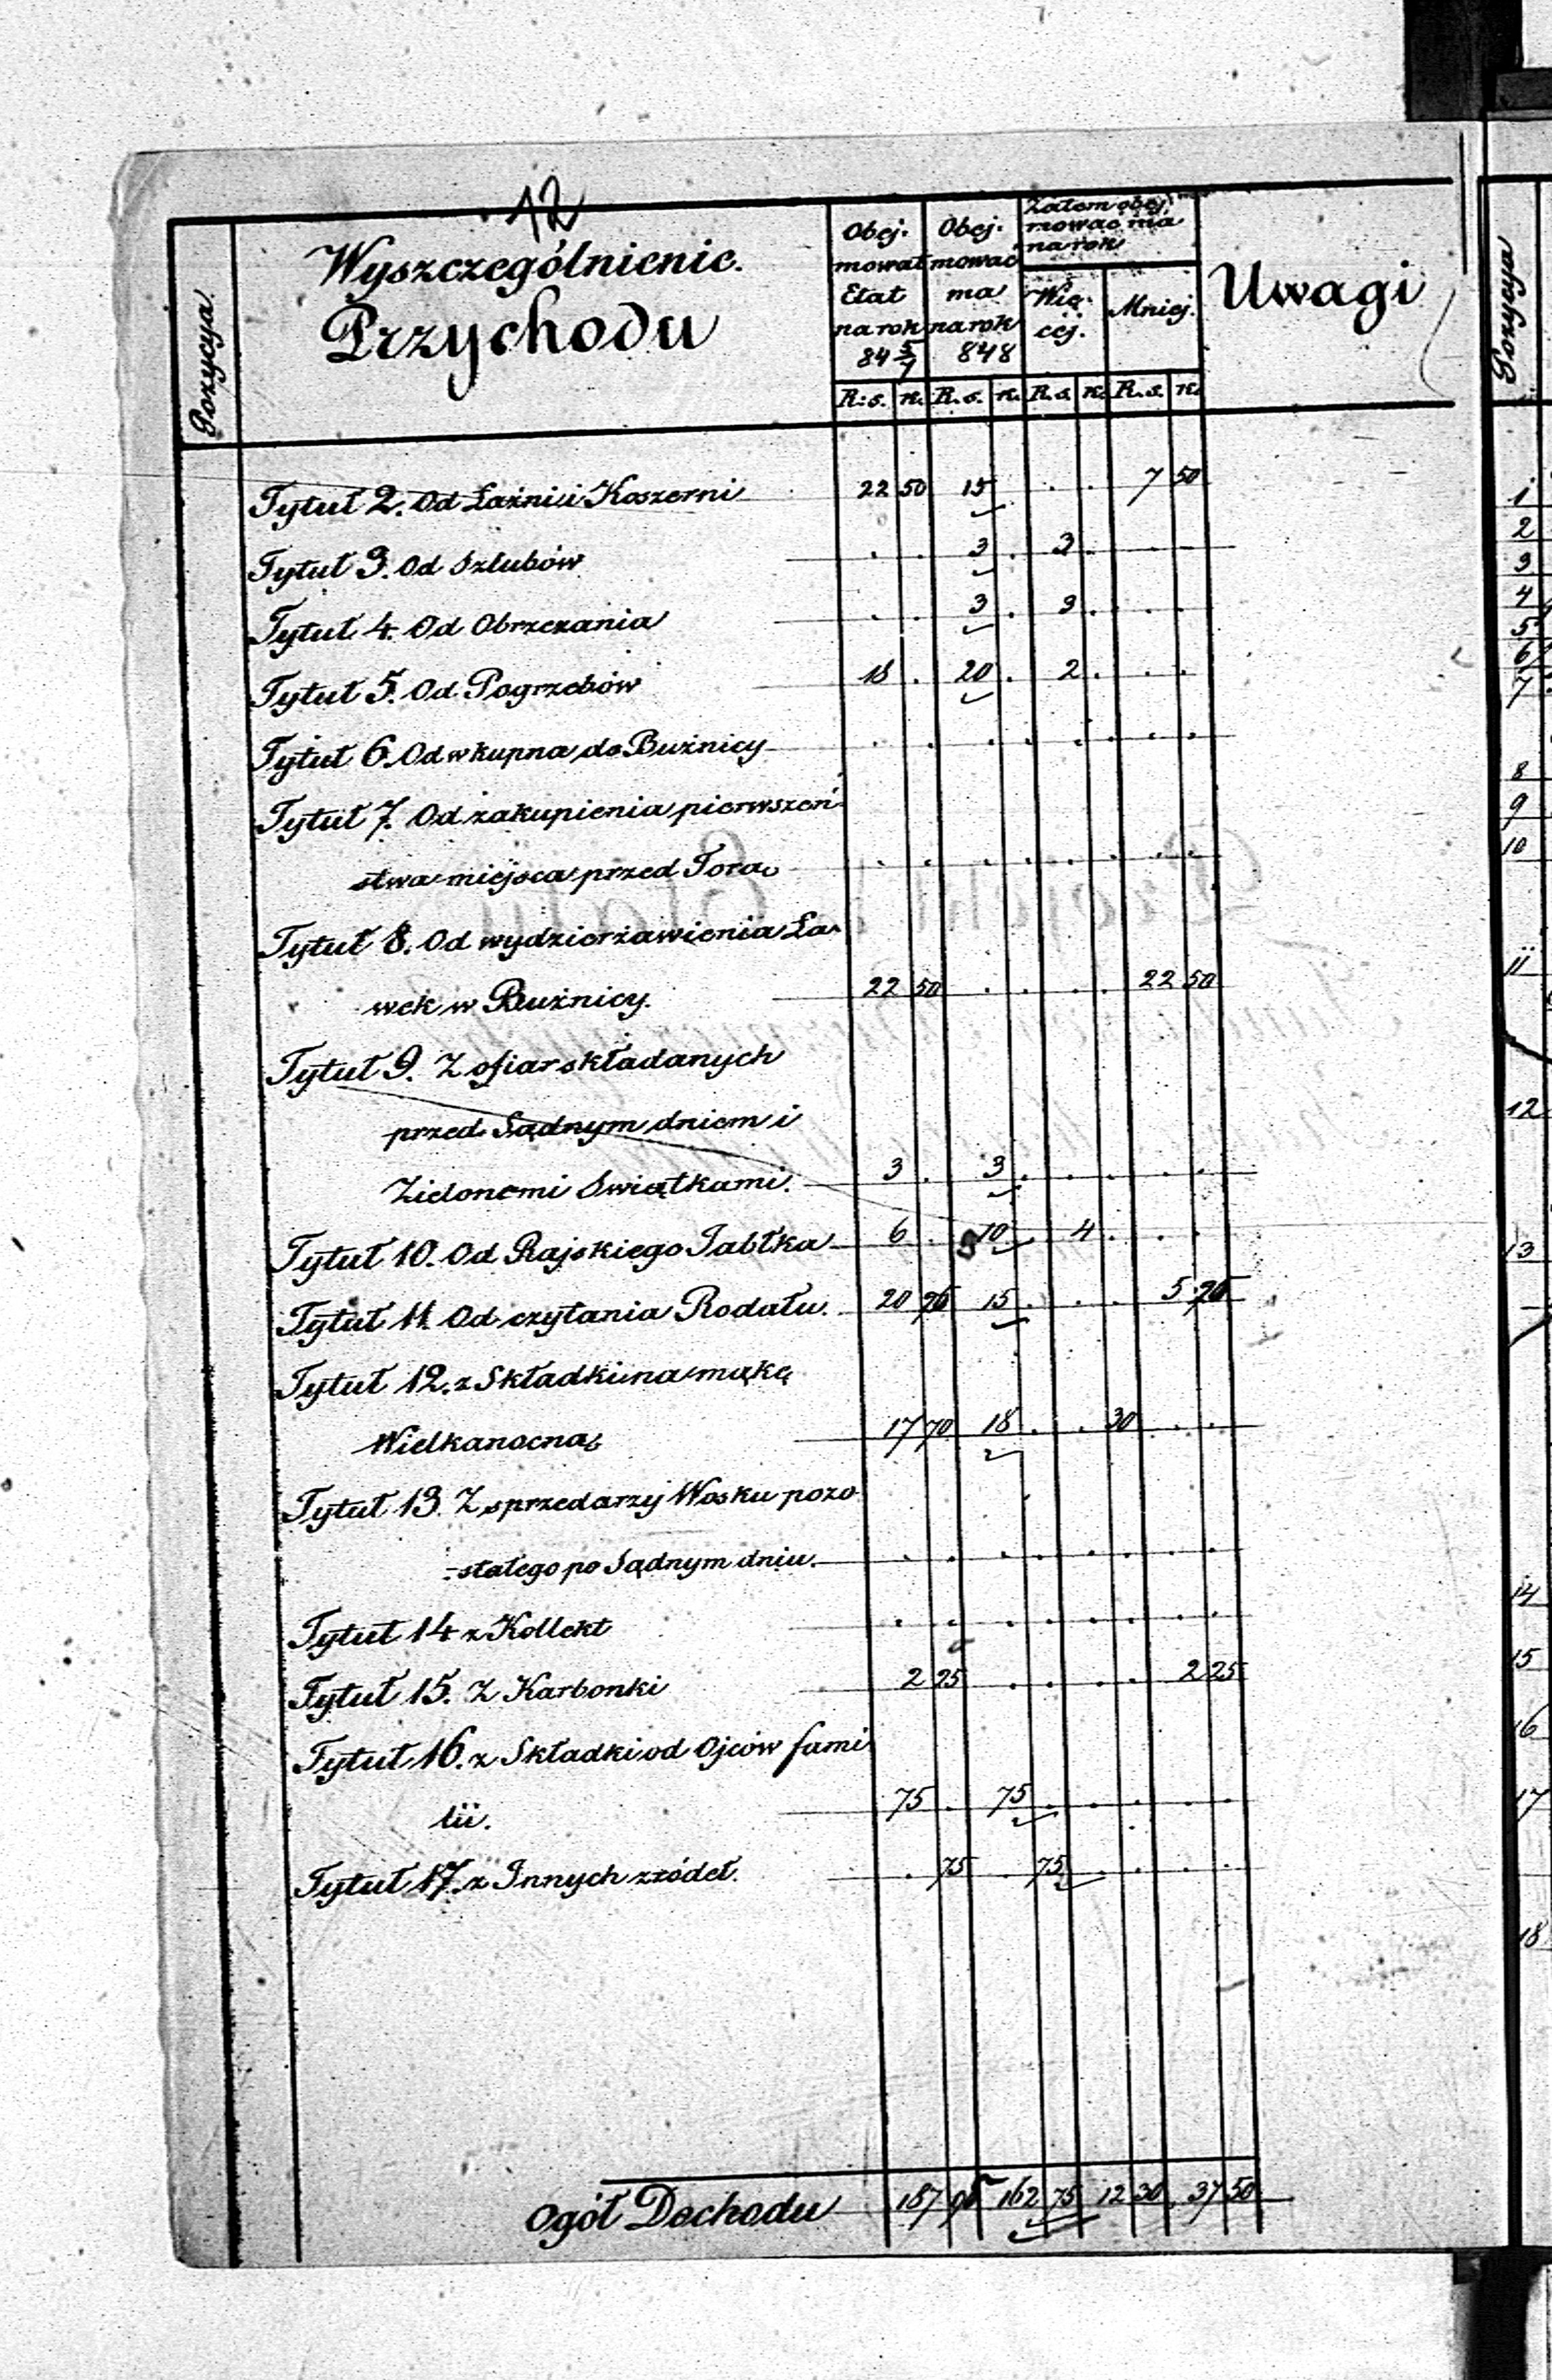 12
Pozycya.
Wyszczególnienie.
Przychodu
Obej-
mował
Etat
na rok
84 5/7
Obej-
mować
ma
na rok
848
Zatem obej
mować ma
na rok
Wię-
cej.
Mniej.
Uwagi
R: s. k. R. s. k. R. s. k. R. s. k.
Tytuł 2. Od Łaźni i Koszerni 22 50 15 . . . 7 50
Tytuł 3. Od Szlubów . . 3 . 3 . . .
Tytuł 4. Od Obrzezania . . 3 . 3 . . .
Tytuł 5. Od Pogrzebów 18 . 20 . 2 . . .
Tytuł 6. Od wkupna do Bużnicy . . . . . . . .
Tytuł 7. Od zakupienia pierwszeń-
stwa miejsca przed Torą . . . . . . . .
Tytuł 8. Od wydzierżawienia Ła-
wek w Bużnicy. 22 50 . . . . 22 50
Tytuł 9. Z ofiar składanych
przed Sądnym dniem i
Zielonemi Swiątkami. 3 . 3 . . . . .
Tytuł 10. Od Rajskiego Jabłka 6 . 10 . 4 . . .
Tytuł 11. Od czytania Rodału. 20 15 . . . 5
Tytuł 12. z Składki na mąkę
Wielkanocną 17 70 18 . . 30 . .
Tytuł 13. Z sprzedarzy Wosku pozo
-stałego po Sądnym dniu. . . . . . . . .
Tytuł 14 z Kollekt . . . . . . . .
Tytuł 15. Z Karbonki 2 25 . . . . 2 25
Tytuł 16. z Składki od Ojców fami
lii. 75 . 75 . . . . .
Tytuł 17. z Innych zródeł. . 75 . 75 . . . .
Ogół Dochodu 187 162 75 12 30 37 50
Pozycya
1
2
3
4
5
6
7
8
9
10
11
12
13
14
15
16
17
18